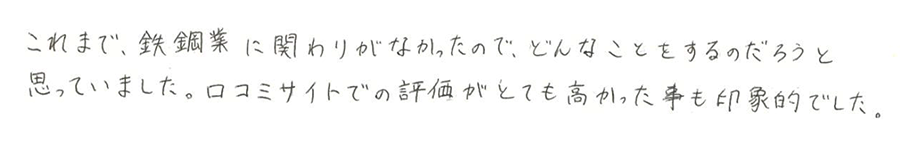 これまで、鉄鋼業に関わりがなかったので、どんなことをするのだろうと
思っていました。口コミサイトでの評価がとても高かった事も印象的でした。